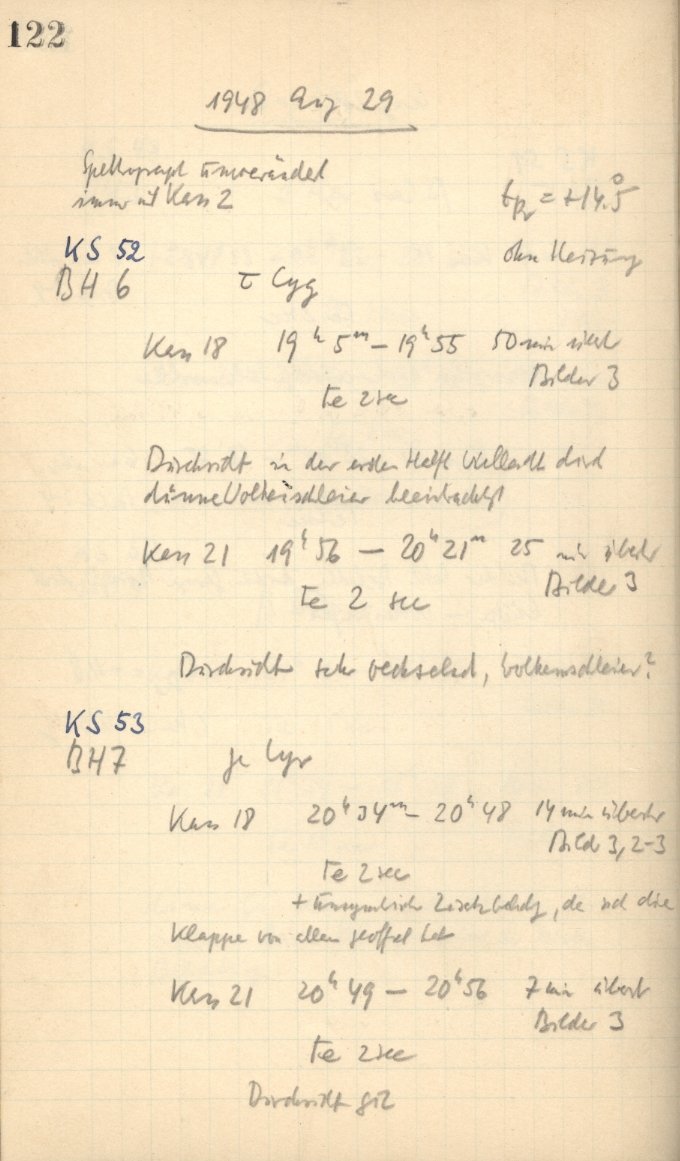 122
1948 Aug 29
Spektrograph unverändert
immer mit Kass 2
tPr = +14.5°
ohne Heizung
KS 52
BH 6 τ Cyg
Kass 18 19h 5m – 19h 55 50 min
Bilder 3
Fe 2 sec
Durchsicht in der ersten Hälfte vielleicht durch
dünne Wolkenschleier beeinträchtigt
Kass 21 19h 56 – 20h 21m 25 min
Bilder 3
Fe 2 sec
Durchsicht sehr wechselnd, Wolkenschleier?
KS 53
BH7 γ Lyr
Kass 18 20h 34m – 20h 48 14 min
Bild 3, 2-3
Fe 2 sec
+ da sich die
Klappe von allein geöffnet hat
Kass 21 20h 49 – 20h 56 7 min
Bilder 3
Fe 2 sec
Durchsicht gut